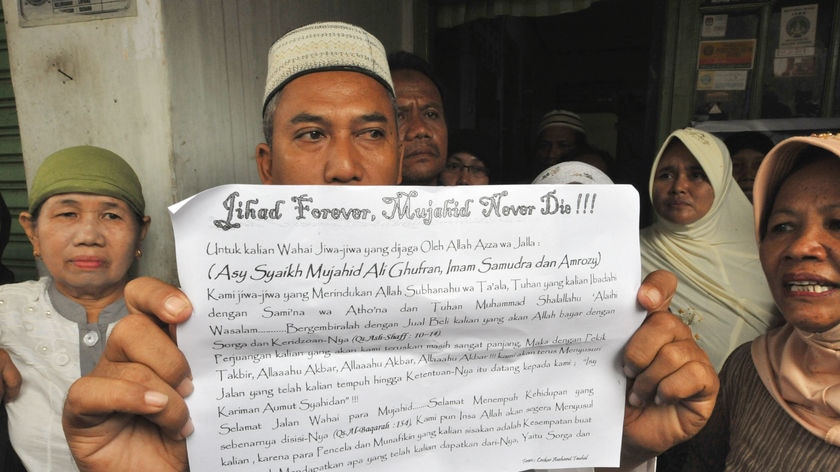 Jihad Forever, Mujahid Never Die !!!
Untuk kalian Wahai Jiwa-jiwa yang djaga Oleh Allah Azza wa Jalla :
(Asy Syaikh Mujahid Ali Ghufran, Imam Samudra dan Amrozy)
Kami jiwa-jiwa yang Merindukan Allah Subhanahu wa Ta'ala, Tuhan yang kalian Ibadahi
dengan Sami'na wa Atho'na dan Tuhan Muhammad Shalallahu 'Alaihi
Wasalam............Bergembiralah dengan Jual Beli kalian yang akan Allah bayar dengan
Sorga dan Keridzoan-Nya (Qs Ash-Shaff : 10-14).
Perjuangan kalian yang akan kami teruskan masih sangat panjang, Maka dengan Pekik
Takbir, Allaaahu Akbar, Allaaahu Akbar, Allaaahu Akbar !!! kami akan terus Menyusuri
Jalan yang telah kalian tempuh hingga Ketentuan-Nya itu datang kepada kami ; "Isy
Kariman Aumut Syahidan" !!!
Selamat Jalan Wahai para Mujahid......Selamat Menempuh Kehidupan yang
sebenarnya disisi-Nya (Qs Al-Baqarah : 154). Kami pun Insa Allah akan segera Menyusul
kalian , karena para Pencela dan Munafikin yang kalian sisakan adalah Kesempatan buat
Mendapatkan apa yang telah kalian dapatkan dari-Nya, Yaitu Sorga dan